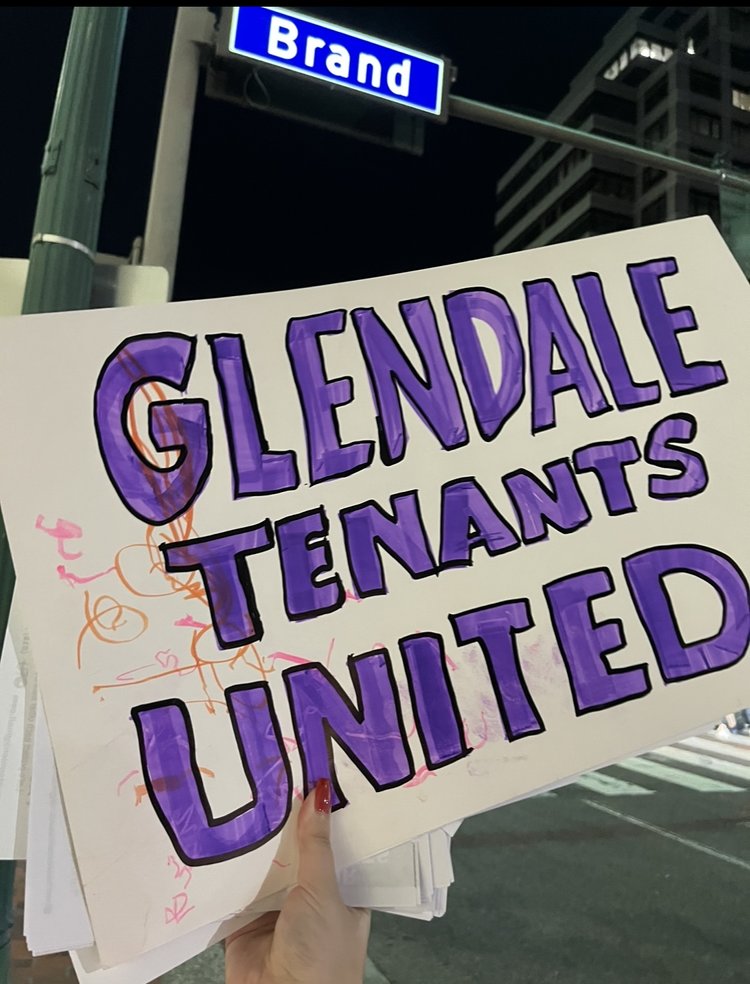 Brand
GLENDALE
TENANTS
UNITED